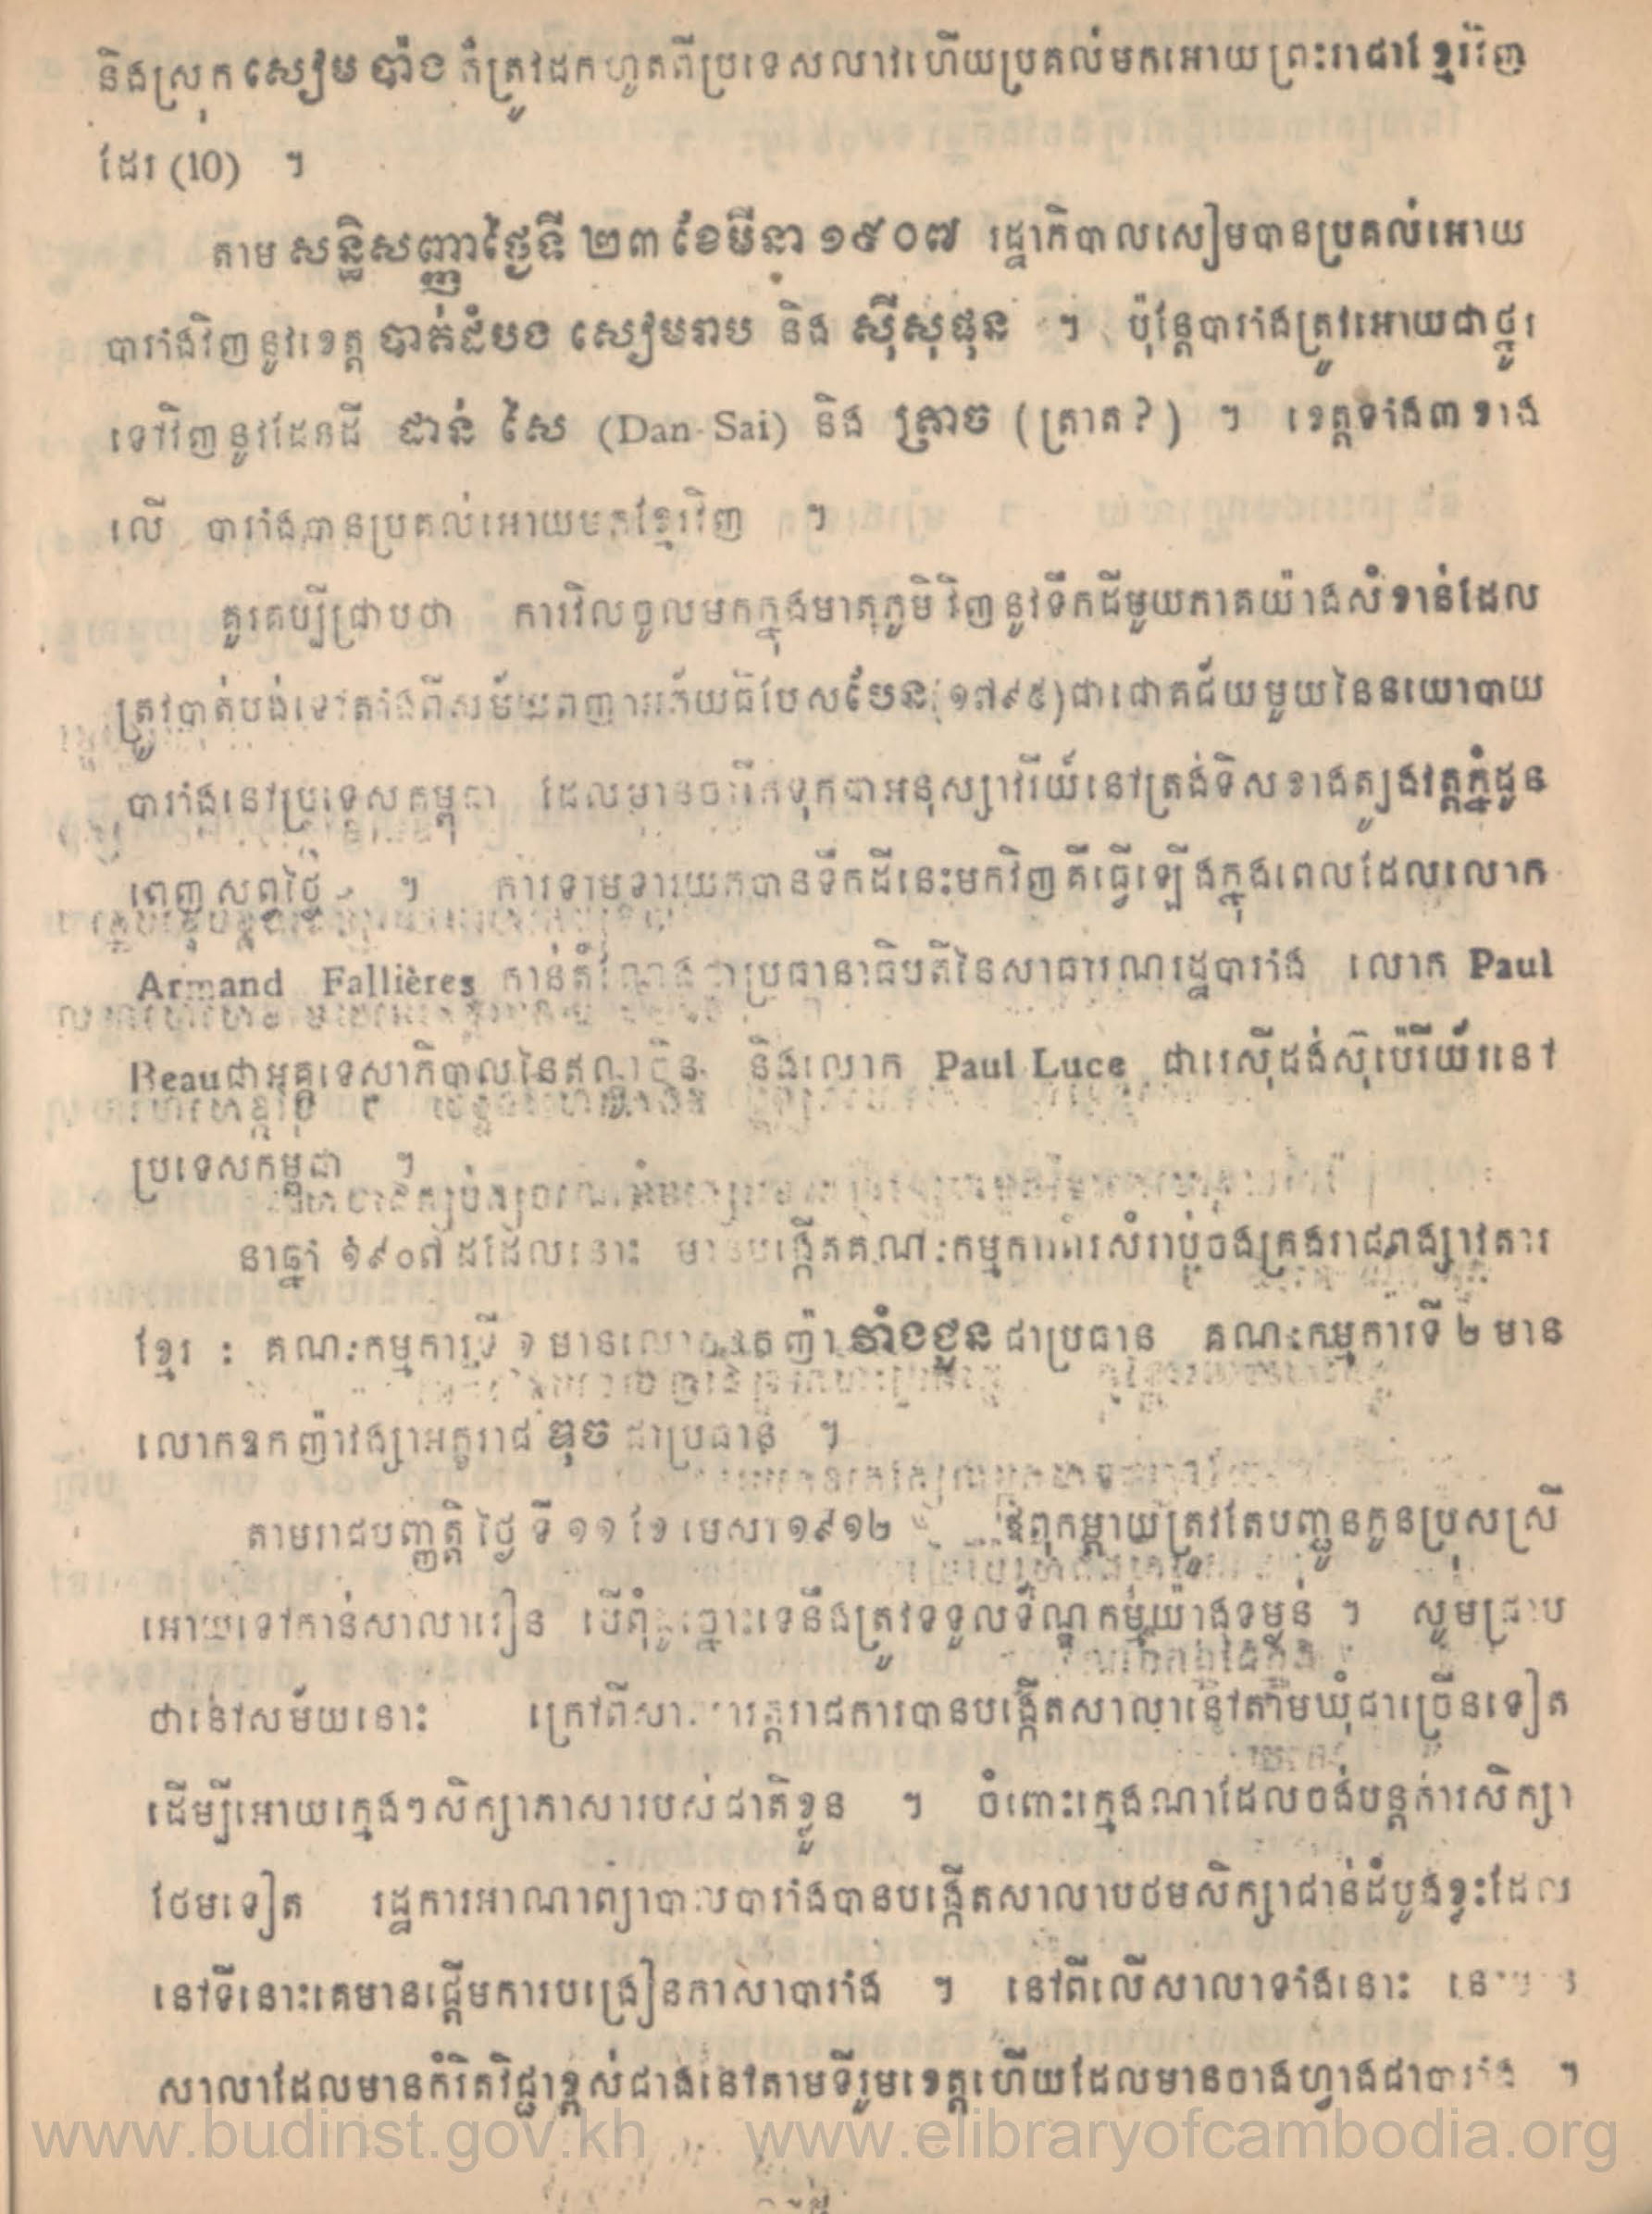 និងស្រុក សៀម ប៉ាង ក៏ត្រូវដកហូតពីប្រទេសលាវហើយប្រគល់មកអោយ ព្រះរាជាខ្មែរវិញ
ដែរ (10) ។
តាម សន្ធិសញ្ញាថ្ងៃទី ២៣ ខែមីនា ១៩០៧ រដ្ឋាភិបាលសៀមបានប្រគល់អោយ
បារាំងវិញនូវខេត្ត បាត់ដំបង សៀមរាប និង ស៊ីសុផុន ។ ប៉ុន្តែបារាំងត្រូវអោយជាថ្នូរ
ទៅវិញនូវដែនដី ដាន់ សៃ (Dan-Sai) និង ត្រាច (ត្រាត?) ។ ខេត្តទាំង៣ខាង
លើ បារាំងបានប្រគល់អោយមកខ្មែរវិញ ។
គួរគប្បីជ្រាបថា ការវិលចូលមកក្នុងមាតុភូមិវិញនូវទឹកដីមួយភាគយ៉ាងសំខាន់ដែល
ត្រូវបាត់បង់ទៅតាំងពីសម័យពញាអភ័យធិបែសបែន(១៧៩៥)ជាជោគជ័យមួយនៃនយោបាយ
បារាំងនៅប្រទេសកម្ពុជា ដែលមានចារឹកទុកជាអនុស្សាវរីយ៍នៅត្រង់ទិសខាងត្បូងវត្តភ្នំដូន
ពេញសព្វថ្ងៃ ។ ការទាមទារយកបានទឹកដីនេះមកវិញគឺធ្វើឡើងក្នុងពេលដែលលោក
Armand Fallières កាន់តំណែងជាប្រធានាធិបតីនៃសាធារណរដ្ឋបារាំង លោក Paul
Beauជាអគ្គទេសាភិបាលនៃឥណ្ឌូចិន និងលោក Paul Luce ជារេស៊ីដង់ស៊ុប៉េរីយ័រនៅ
ប្រទេសកម្ពុជា ។
នាឆ្នាំ ១៩០៧ ដដែលនោះ មានបង្កើតគណៈកម្មការ២សំរាប់ចងក្រងរាជពង្សាវតារ
ខ្មែរ : គណៈកម្មការទី ១ មានលោកឧកញ៉ា ទាំងជួន ជាប្រធាន គណៈកម្មការទី ២ មាន
លោកឧកញ៉ាវង្សាអគ្គរាជ ឌុច ជាប្រធាន ។
តាមរាជបញ្ញត្តិ ថ្ងៃ ទី ១១ ខែ មេសា ១៩១២ ឪពុកម្ដាយត្រូវតែបញ្ជូនកូនប្រុសស្រី
អោយទៅកាន់សាលារៀន បើពុំដូច្នោះទេនឹងត្រូវទទួលទណ្ឌកម្មយ៉ាងទម្ងន់ ។ សូមជ្រាប
ថានៅសម័យនោះ ក្រៅពីសាលារត្តរាជការបានបង្កើតសាលានៅតាមឃុំជាច្រើនទៀត
ដើម្បីអោយក្មេងៗសិក្សាភាសារបស់ជាតិខ្លួន ។ ចំពោះក្មេងណាដែលចង់បន្តការសិក្សា
ថែមទៀត រដ្ឋការអាណាព្យាបាលបារាំងបានបង្កើតសាលាបឋមសិក្សាជាន់ដំបូងខ្លះដែល
នៅទីនោះគេមានផ្ដើមការបង្រៀនភាសាបារាំង ។ នៅពីលើសាលាទាំងនោះ
សាលាដែលមានកំរិតវិជ្ជាខ្ពស់ជាងនៅតាមទីរួមខេត្តហើយដែលមានចាងហ្វាងជាបារាំង ។
www.budinst.gov.kh www.elibraryofcambodia.org